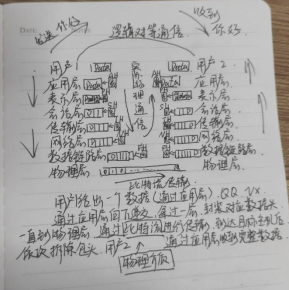 发送 你好
收到 你好
逻辑对等通信
用户1 Data Data 用户2
应用层 Data Data 应用层
表示层 表示层
会话层 会话层
传输层 传输层
网络层 网络层
数据链路层 数据链路层
物理层 物理层
实际物理通信
比特流传输
用户1给出一个数据(通过应用层) QQ VX
通过应用层向下递交 每过一层 封装对应数据头
一直到物理层 通过比特流进行传输 到达目的主机后
依次拆除包头 用户2 通过应用层收到完整数据
物理介质